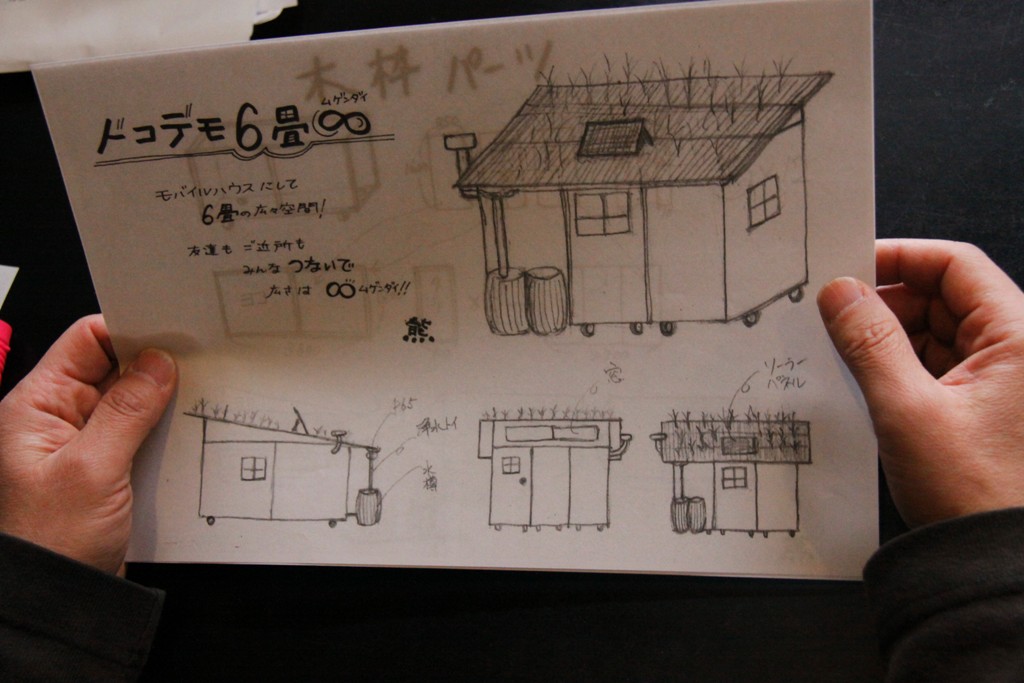 木枠パーツ
ムゲンダイ
ドコデモ6畳∞
モバイルハウスにして
6畳の広々空間!
友達も ご近所も
みんな つないで
広さは ∞ムゲンダイ!!
熊
ソーラー
パネル
窓
水
樽